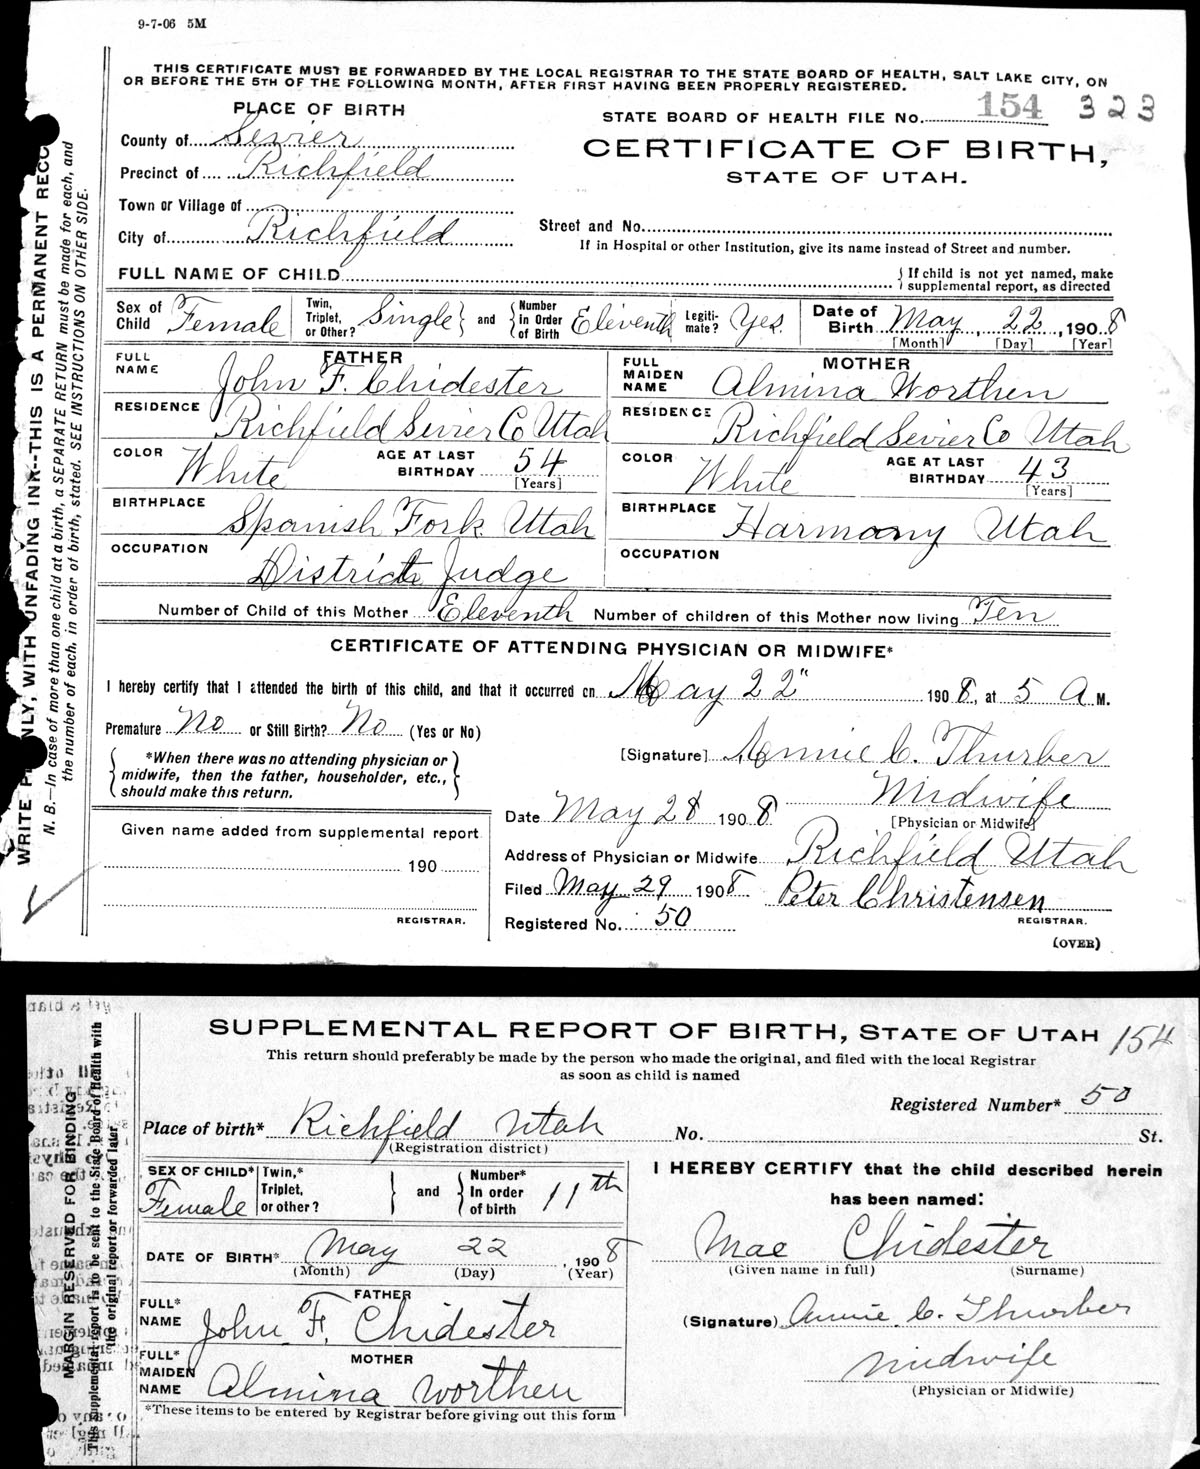 9-7-06 5M
THIS CERTIFICATE MUST BE FORWARDED BY THE LOCAL REGISTRAR TO THE STATE BOARD OF HEALTH, SALT LAKE CITY, ON
OR BEFORE THE 5TH OF THE FOLLOWING MONTH, AFTER FIRST HAVING BEEN PROPERLY REGISTERED.
PLACE OF BIRTH
STATE BOARD OF HEALTH FILE No. 154 323
County of Sevier
CERTIFICATE OF BIRTH,
Precinct of Richfield
STATE OF UTAH.
Town or Village of
City of Richfield
Street and No.
If in Hospital or other Institution, give its name instead of Street and number.
FULL NAME OF CHILD
If child is not yet named, make
supplemental report, as directed
Sex of Child Female
Twin, Triplet, or Other? Single and Number in Order of Birth Eleventh
Legiti-mate? Yes.
Date of Birth May 22, 1908
[Month] [Day] [Year]
FATHER
FULL NAME John F. Chidester
MOTHER
FULL MAIDEN NAME Almina Worthen
RESIDENCE Richfield Sevier Co Utah
RESIDENCE Richfield Sevier Co Utah
COLOR White AGE AT LAST BIRTHDAY 54 [Years]
COLOR White AGE AT LAST BIRTHDAY 43 [Years]
BIRTHPLACE Spanish Fork Utah
BIRTHPLACE Harmony Utah
OCCUPATION District Judge
OCCUPATION
Number of Child of this Mother Eleventh Number of children of this Mother now living Ten
CERTIFICATE OF ATTENDING PHYSICIAN OR MIDWIFE*
I hereby certify that I attended the birth of this child, and that it occurred on May 22" 1908, at 5 A M.
Premature No or Still Birth? No (Yes or No)
*When there was no attending physician or
midwife, then the father, householder, etc.,
should make this return.
[Signature] Annie C. Thurber
Midwife
[Physician or Midwife]
Date May 28 1908
Given name added from supplemental report
190
REGISTRAR.
Address of Physician or Midwife Richfield Utah
Filed May 29 1908 Peter Christensen
REGISTRAR.
Registered No. 50
(OVER)
WRITE NLY, WITH UNFADING INK--THIS IS A PERMANENT RECO
N. B.—In case of more than one child at a birth, a SEPARATE RETURN must be made for each, and
the number of each, in order of birth, stated. SEE INSTRUCTIONS ON OTHER SIDE.
SUPPLEMENTAL REPORT OF BIRTH, STATE OF UTAH 154
This return should preferably be made by the person who made the original, and filed with the local Registrar
as soon as child is named
Registered Number* 50
Place of birth* Richfield Utah No. St.
(Registration district)
SEX OF CHILD* Female
Twin,* Triplet, or other? and Number* In order of birth 11th
I HEREBY CERTIFY that the child described herein
has been named:
Mae Chidester
(Given name in full) (Surname)
DATE OF BIRTH* May 22, 1908
(Month) (Day) (Year)
FATHER
FULL* NAME John F. Chidester
(Signature) Annie C. Thurber
Midwife
(Physician or Midwife)
MOTHER
FULL* MAIDEN NAME Almina Worthen
*These items to be entered by Registrar before giving out this form
MARGIN RESERVED FOR BINDING
This supplemental report is to be sent to the State Board of Health with
the original report or forwarded later